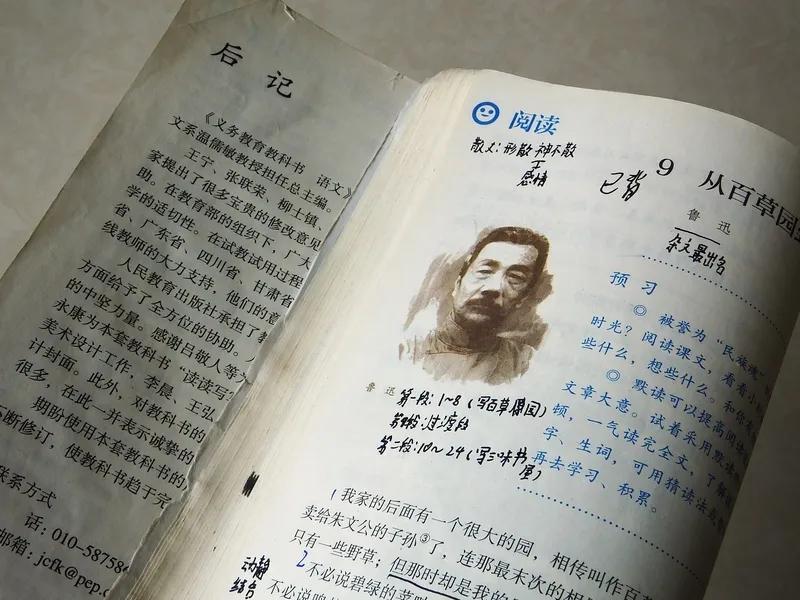 后 记
《义务教育教科书 语文》
文系温儒敏教授担任总主编。
王宁、张联荣、柳士镇、
家提出了很多宝贵的修改意见
助。在教育部的组织下,广大
学的适切性。在试教试用过程
省、广东省、四川省、甘肃省
线教师的大力支持,他们的意
人民教育出版社承担了教
方面给予了全方位的协助。
的中坚力量。感谢吕敬人等为
永康为本套教科书“读读写
美术设计工作,李晨、王弘
计封面。此外,对教科书的
很多,在此一并表示诚挚的
期盼使用本套教科书的
不断修订,使教科书趋于完
联系方式
话:010-58758
邮箱:jcfk@pep.c
阅读
散文:形散神不散
感情
已背
9 从百草园
鲁 迅
杂文最出名
预 习
◎ 被誉为“民族魂”
时光?阅读课文,看看小
些什么,想些什么。和你
◎ 默读可以提高阅读
文章大意。试着采用默读
顿,一气读完全文,了解
字、生词,可用猜读法
再去学习、积累。
鲁 迅
第一段:1~8(写百草园)
过渡段
第二段:10~24(写三味书
屋)
1 我家的后面有一个很大的园,相传叫作百草
卖给朱文公的子孙③了,连那最末次的相
只有一些野草;但那时却是我的
2 不必说碧绿的菜畦
动静
结合
不必说鸣